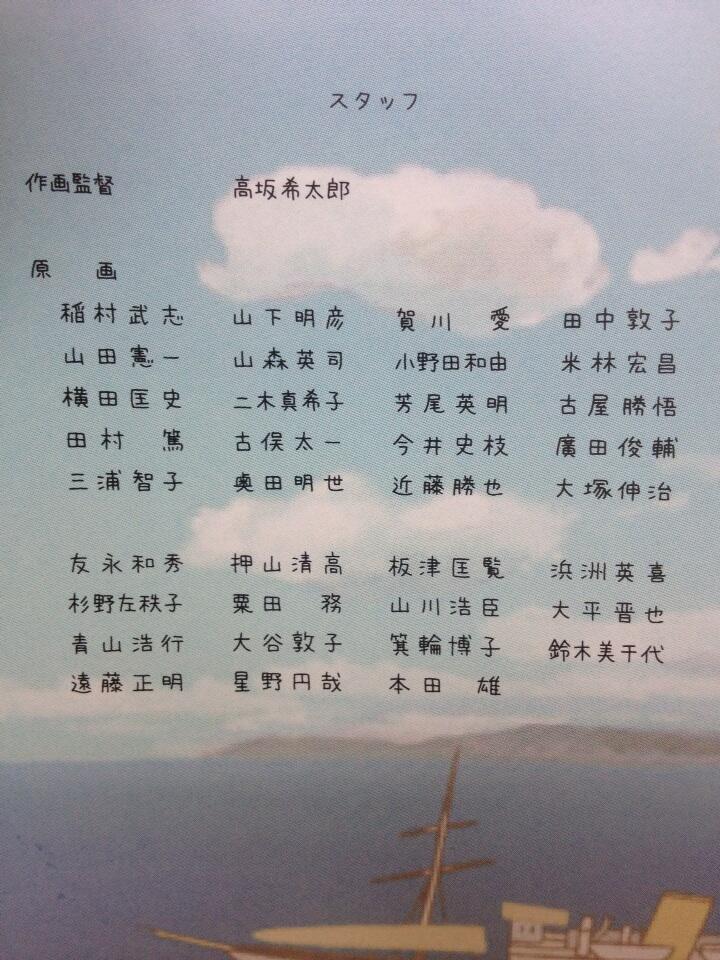 スタッフ
作画監督 高坂希太郎
原 画
稲村武志 山下明彦 賀川 愛 田中敦子
山田憲一 山森英司 小野田和由 米林宏昌
横田匡史 二木真希子 芳尾英明 古屋勝悟
田村 篤 古俣太一 今井史枝 廣田俊輔
三浦智子 奥田明世 近藤勝也 大塚伸治
友永和秀 押山清高 板津匡覧 浜洲英喜
杉野左秩子 粟田 務 山川浩臣 大平晋也
青山浩行 大谷敦子 箕輪博子 鈴木美千代
遠藤正明 星野円哉 本田 雄